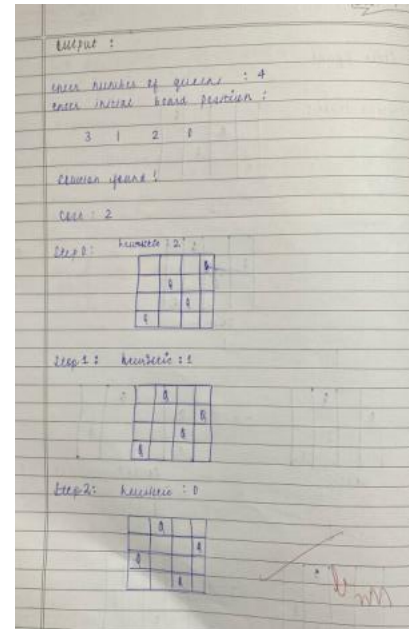 Output :
enter number of queens : 4
enter initial board position :
3 1 2 0
Solution found !
Cost : 2
Step 0: heuristic : 2
Q
Q
Q
Q
Step 1: heuristic : 1
Q
Q
Q
Q
Step 2: heuristic : 0
Q
Q
Q
Q